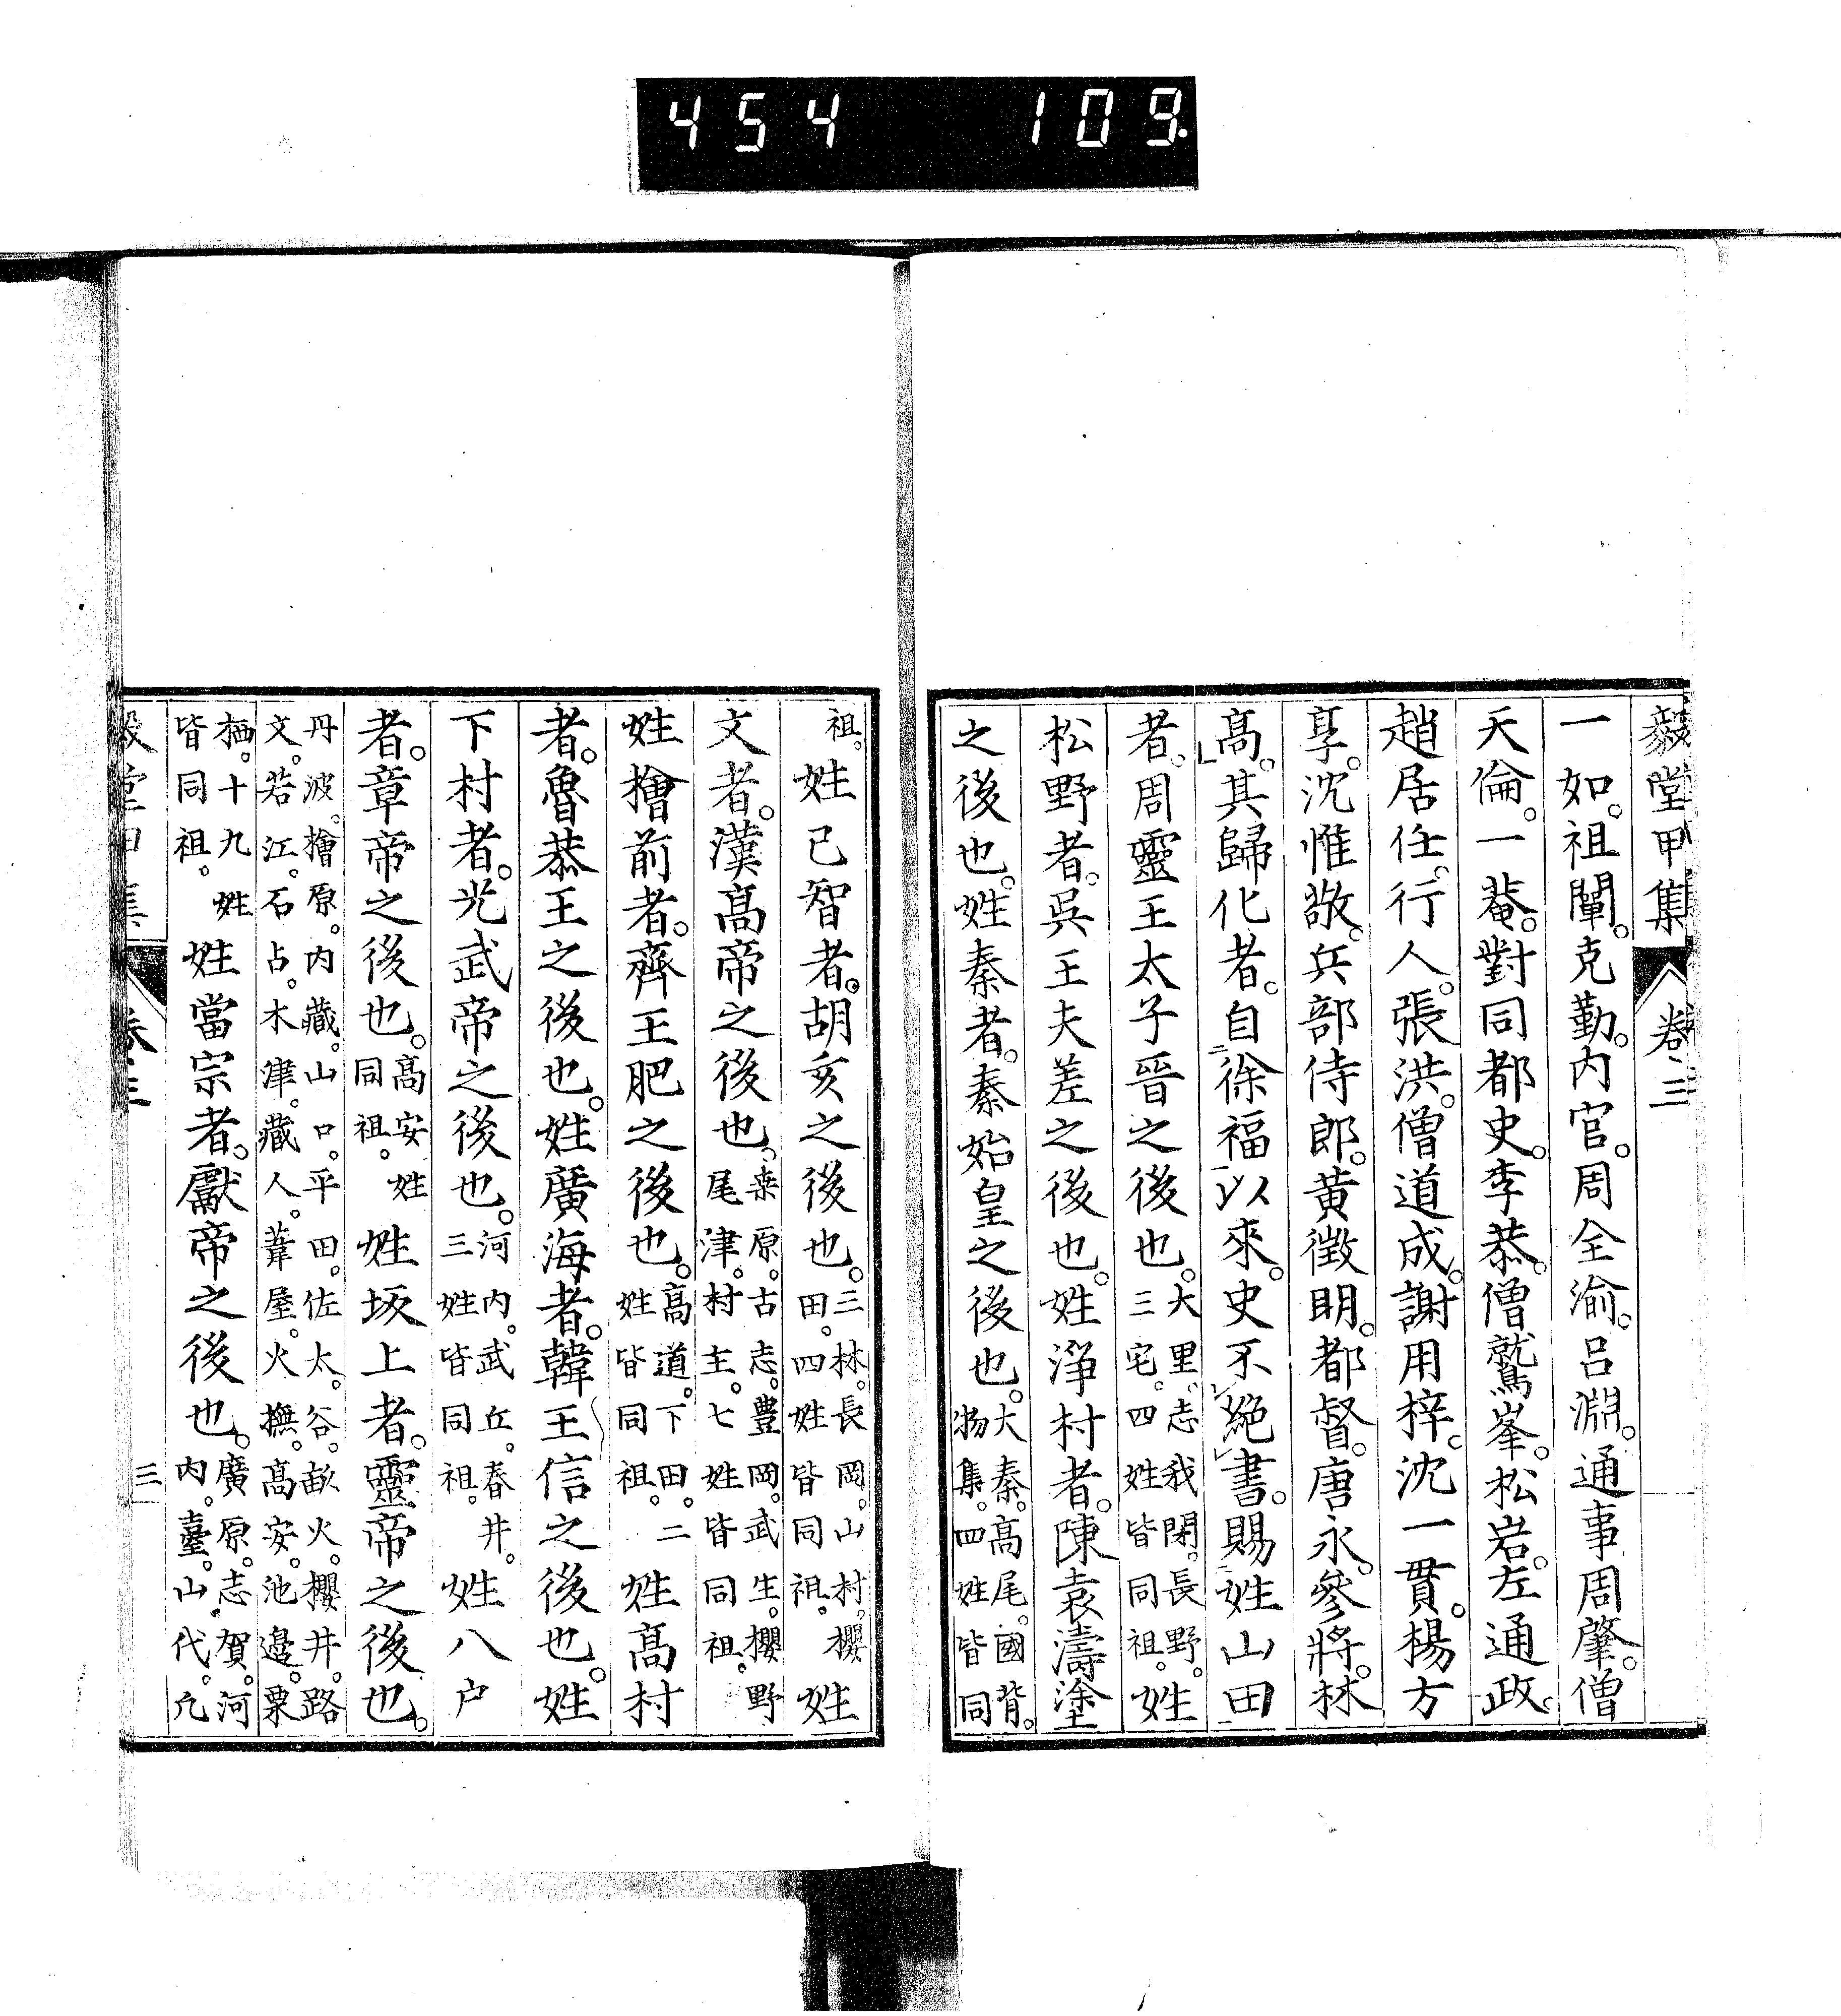 454 109.
毅堂甲集 卷三
一如。祖闡。克勤。内官。周全渝。呂淵。通事周肇。僧
天倫。一菴。對同都史。李恭。僧鷲峯。松岩。左通政。
趙居任。行人。張洪。僧道成。謝用梓。沈一貫。楊方
亨。沈惟敬。兵部侍郎。黃徵明。都督。唐永。參將。林
高。其歸化者。自徐福以來。史不絕書。賜姓山田
者。周靈王太子晉之後也。大里。志我閇。長野。三宅。四姓皆同祖。姓
松野者。吳王夫差之後也。姓淨村者。陳袁濤塗
之後也。姓秦者。秦始皇之後也。大秦。高尾。國背。物集。四姓皆同
祖。姓己智者。胡亥之後也。三林。長岡。山村。櫻田。四姓皆同祖。姓
文者。漢高帝之後也。桒原。古志。豊岡。武生。櫻野尾津。村主。七姓皆同祖。
姓檜前者。齊王肥之後也。高道。下田。二姓皆同祖。姓高村
者。魯恭王之後也。姓廣海者。韓王信之後也。姓
下村者。光武帝之後也。河内。武丘。春井。三姓皆同祖。姓八户
者。章帝之後也。高安姓同祖。姓坂上者。靈帝之後也。
丹波。檜原。内藏。山口。平田。佐太。谷。畝火。櫻井。路
文。若江。石占。木津。藏人。葦屋。火撫。高安。池邉。粟
栖。十九姓皆同祖。姓當宗者。獻帝之後也。廣原。志賀。河内。臺。山代。凢
毅堂甲集 卷三 三